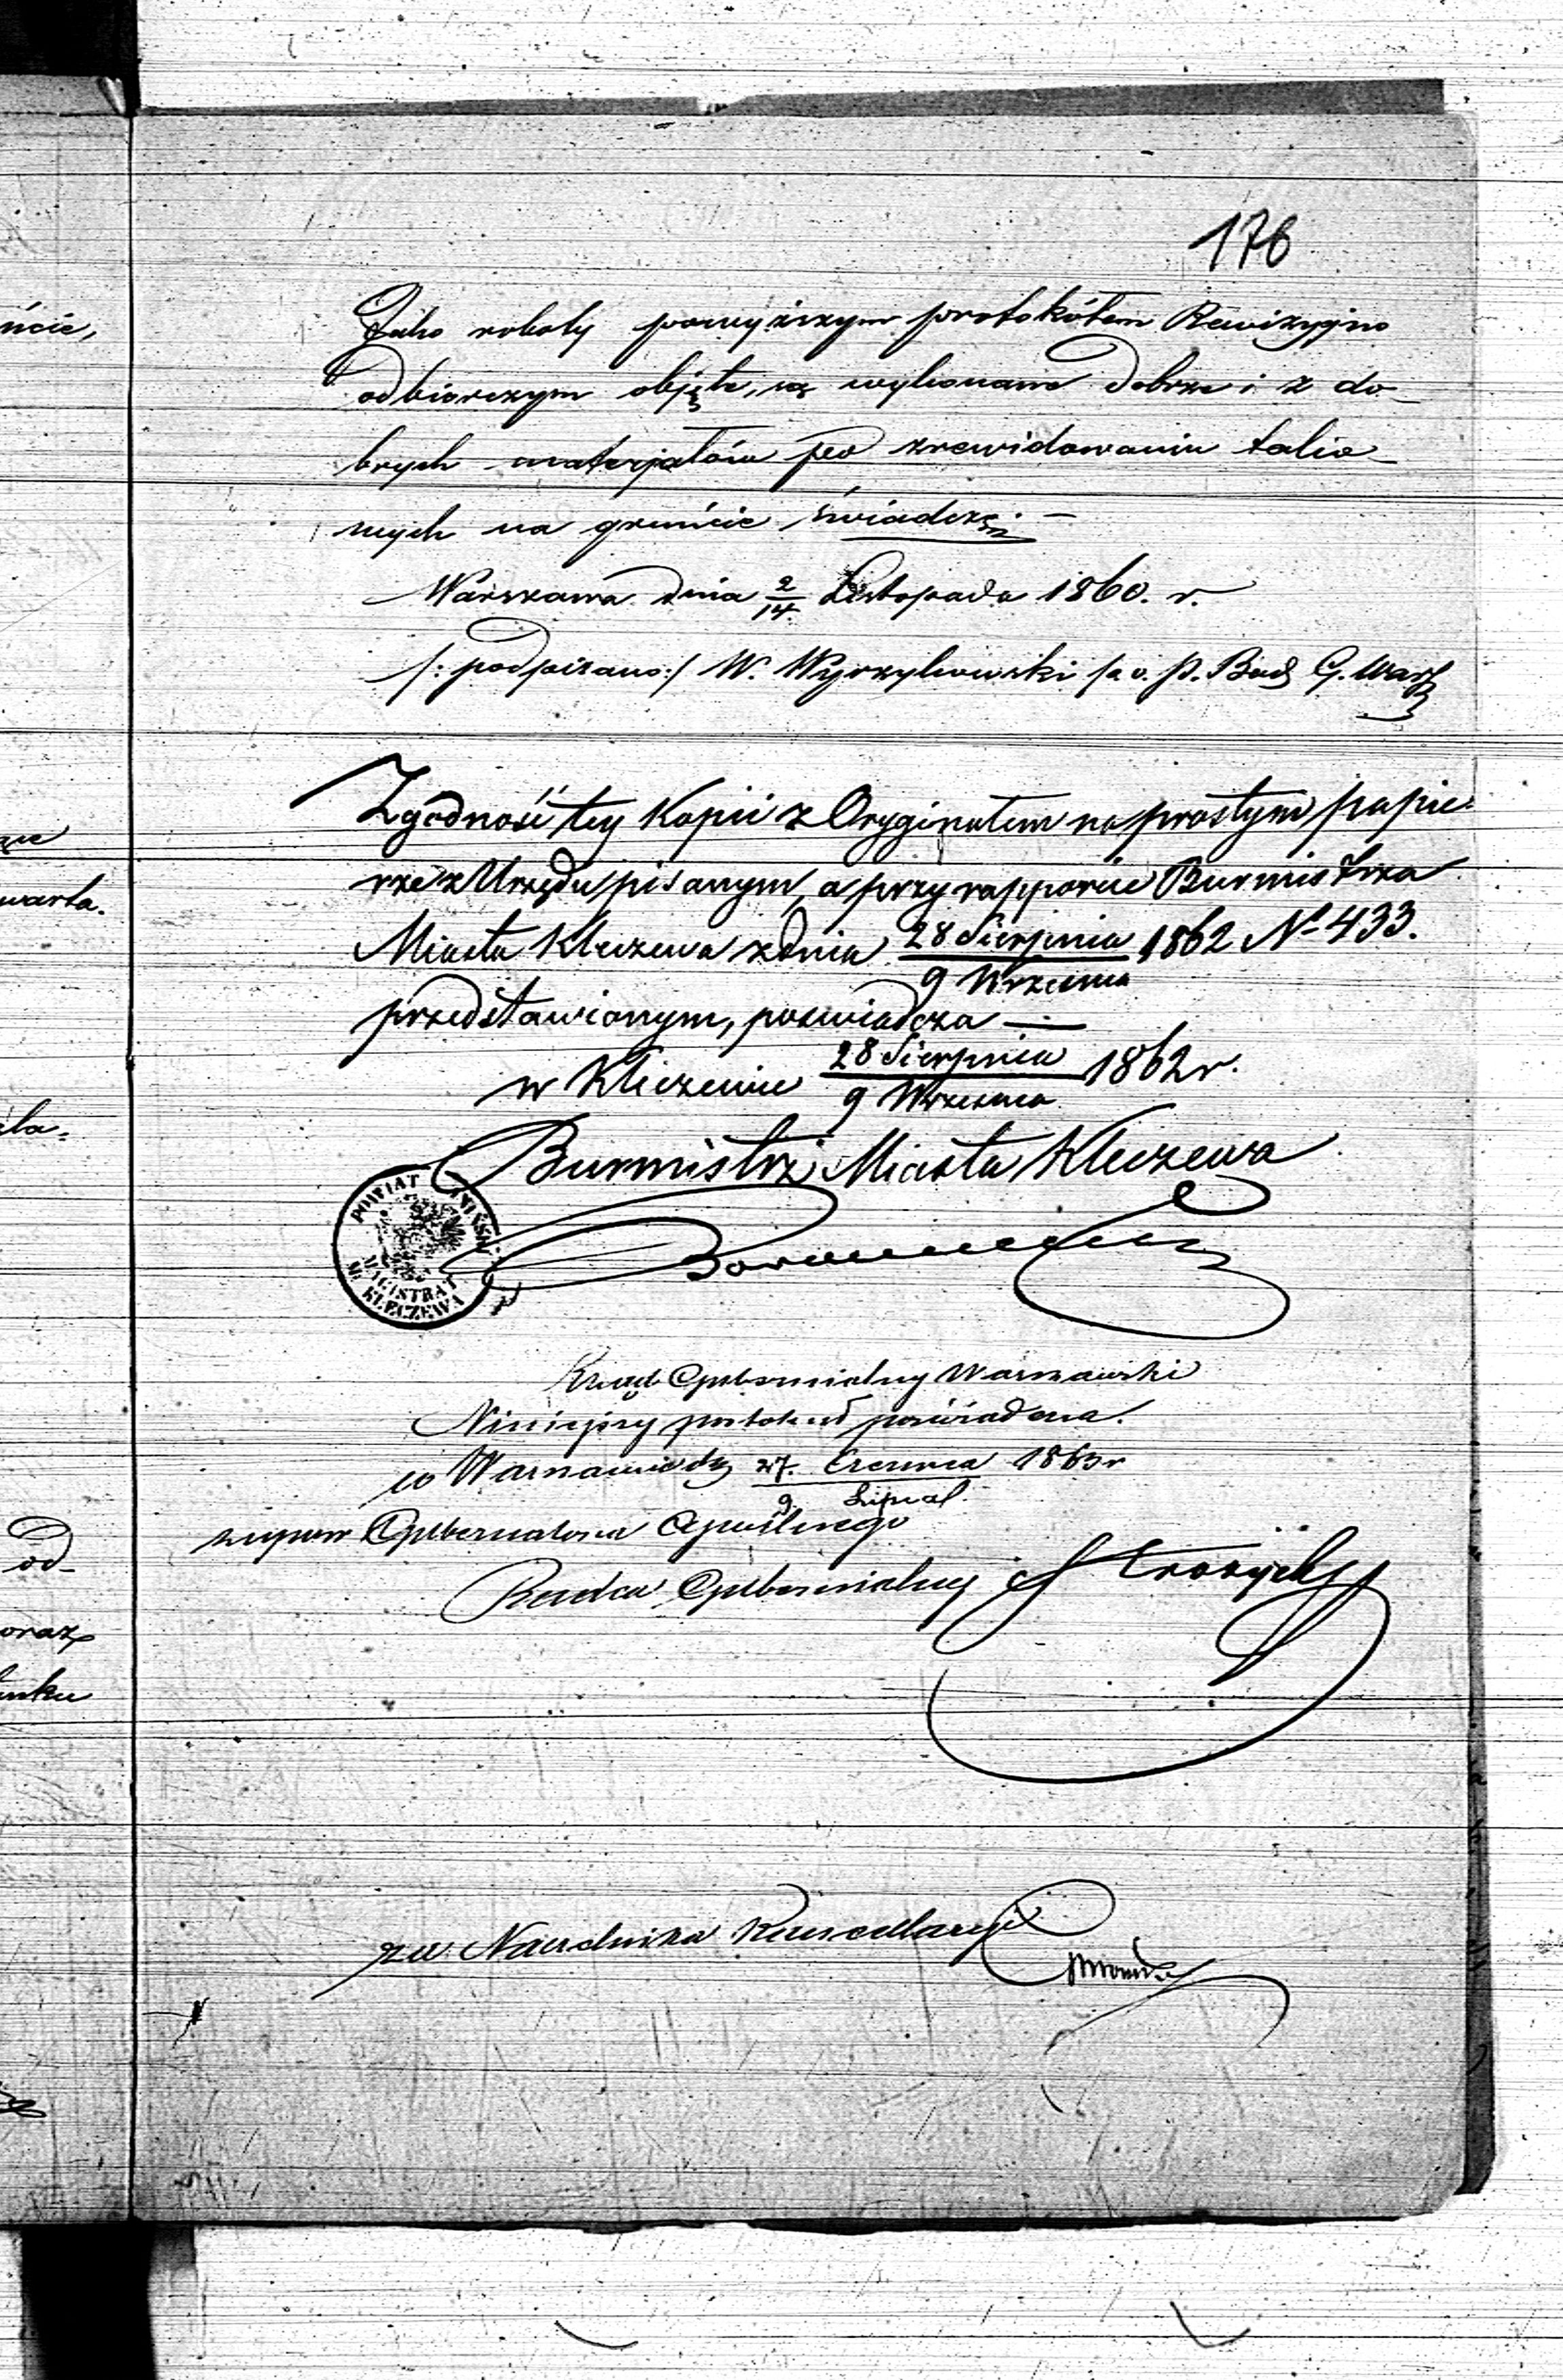 176
Jako roboty powyższym protokółem Rewizyjno
odbiorczym objęte, są wykonane dobrze i z do-
brych materjałów po zrewidowaniu takio-
wych na gruncie świadczę.—
Warszawa dnia 2/14 Listopada 1860. r.
/: podpisano:/ W. Wyrzykowski p. o. p. Bud G. Warsz
Zgodność tey Kopii z Oryginałem na prostym papie-
rze z Urzędu pisanym, a przy rapporcie Burmistrza
Miasta Kleczewa z dnia 28 Sierpnia / 9 Września 1862 No 433.
przedstawionym, poswiadcza —
w Kleczewie 28 Sierpnia / 9 Września 1862 r.
Burmistrz Miasta Kleczewa
POWIAT
MAGISTRAT
M. KLECZEWA
Rząd Gubernialny Warszawski
Niniejszy protokuł poświadcza.
w Warszawie dn 27. Czerwca / 9 Lipca 1863 r
Gubernatora Cywilnego
Radca Gubernialny
za Naczelnika Kancellaryi
ście,
warta.
od-
oraz
unku